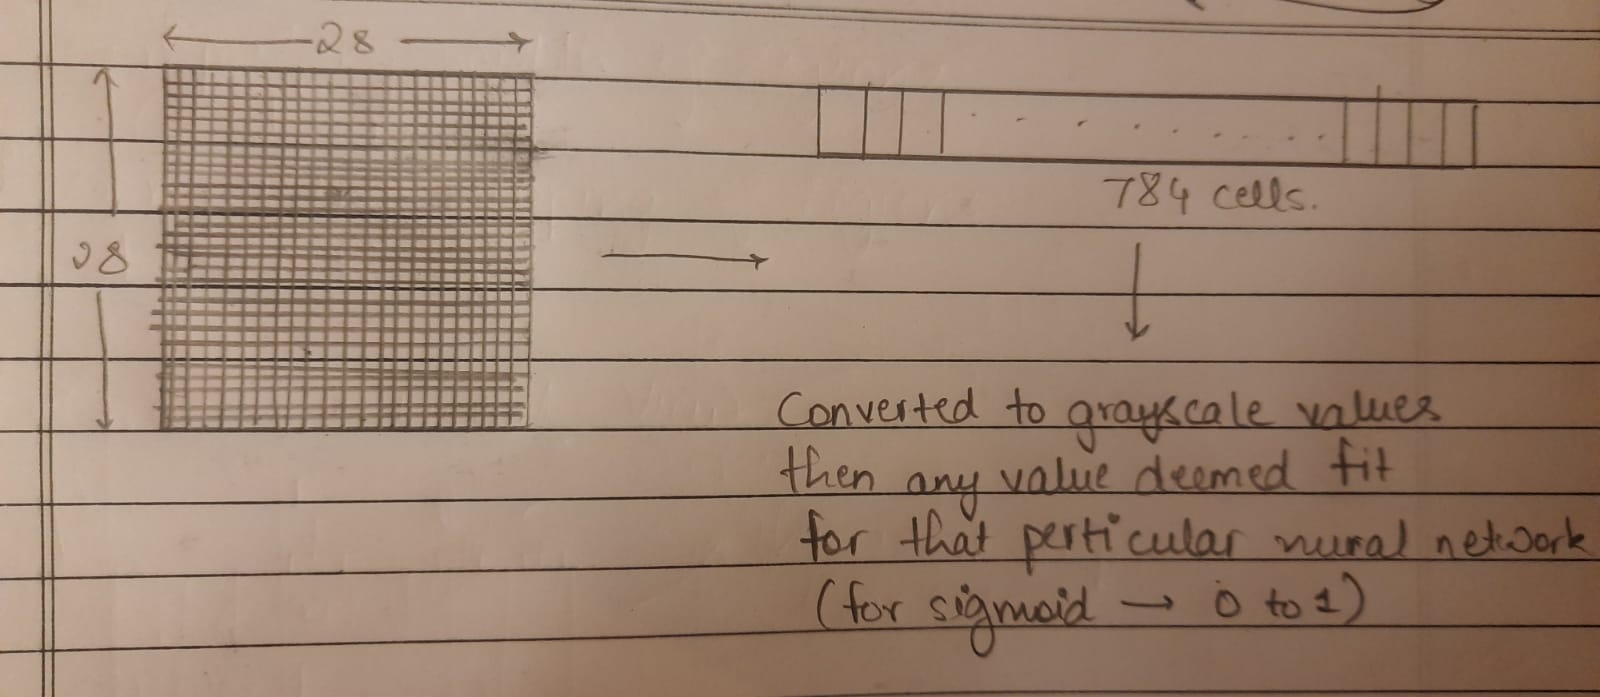 28
28
784 cells.
Converted to grayscale values
then any value deemed fit
for that perticular nural network
(for sigmoid → 0 to 1)